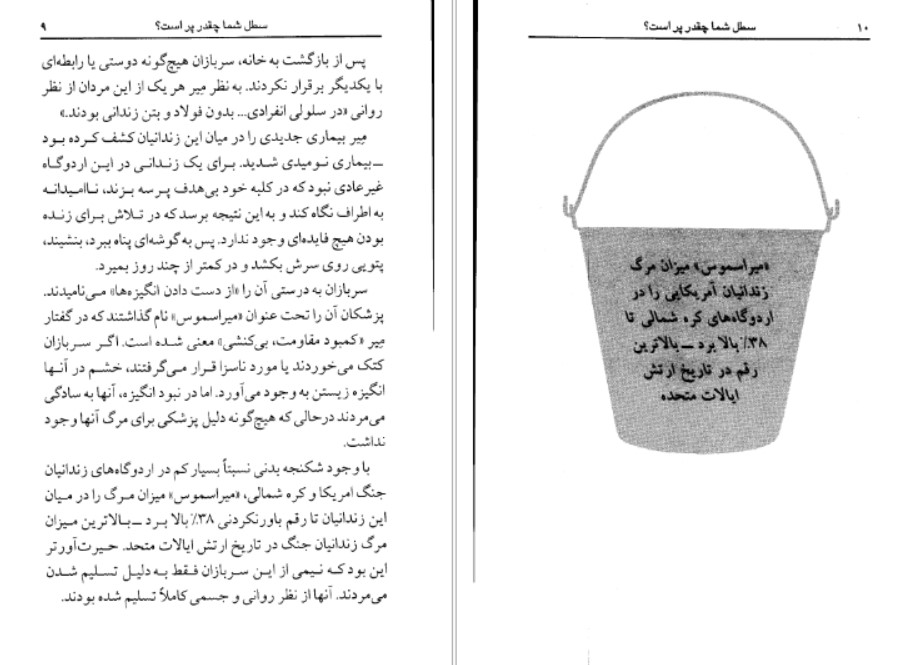 سطل شما چقدر پر است؟ ۹
پس از بازگشت به خانه، سربازان هیچ‌گونه دوستی یا رابطه‌ای
با یکدیگر برقرار نکردند. به نظر مِیر هر یک از این مردان از نظر
روانی «در سلولی انفرادی... بدون فولاد و بتن زندانی بودند.»
مِیر بیماری جدیدی را در میان این زندانیان کشف کرده بود
ـ بیماری نومیدی شدید. برای یک زندانی در این اردوگاه
غیرعادی نبود که در کلبه خود بی‌هدف پرسه بزند، ناامیدانه
به اطراف نگاه کند و به این نتیجه برسد که در تلاش برای زنده
بودن هیچ فایده‌ای وجود ندارد. پس به گوشه‌ای پناه ببرد، بنشیند،
پتویی روی سرش بکشد و در کمتر از چند روز بمیرد.
سربازان به درستی آن را «از دست دادن انگیزه‌ها» می‌نامیدند.
پزشکان آن را تحت عنوان «میراسموس» نام گذاشتند که در گفتار
مِیر «کمبود مقاومت، بی‌کنشی» معنی شده است. اگر سربازان
کتک می‌خوردند یا مورد ناسزا قرار می‌گرفتند، خشم در آنها
انگیزه زیستن به وجود می‌آورد. اما در نبود انگیزه، آنها به سادگی
می‌مردند درحالی که هیچ‌گونه دلیل پزشکی برای مرگ آنها وجود
نداشت.
با وجود شکنجه بدنی نسبتاً بسیار کم در اردوگاه‌های زندانیان
جنگ امریکا و کره شمالی، «میراسموس» میزان مرگ را در میان
این زندانیان تا رقم باورنکردنی ۳۸٪ بالا برد ـ بالاترین میزان
مرگ زندانیان جنگ در تاریخ ارتش ایالات متحد. حیرت‌آورتر
این بود که نیمی از این سربازان فقط به دلیل تسلیم شدن
می‌مردند. آنها از نظر روانی و جسمی کاملاً تسلیم شده بودند.
۱۰ سطل شما چقدر پر است؟
«میراسموس» میزان مرگ
زندانیان آمریکایی را در
اردوگاه‌های کره شمالی تا
۳۸٪ بالا برد ـ بالاترین
رقم در تاریخ ارتش
ایالات متحده